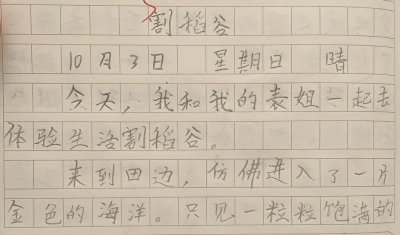 割稻谷
10月3日 星期日 晴
今天，我和我的表姐一起去
体验生活割稻谷。
来到田边，仿佛进入了一片
金色的海洋。只见一粒粒饱满的